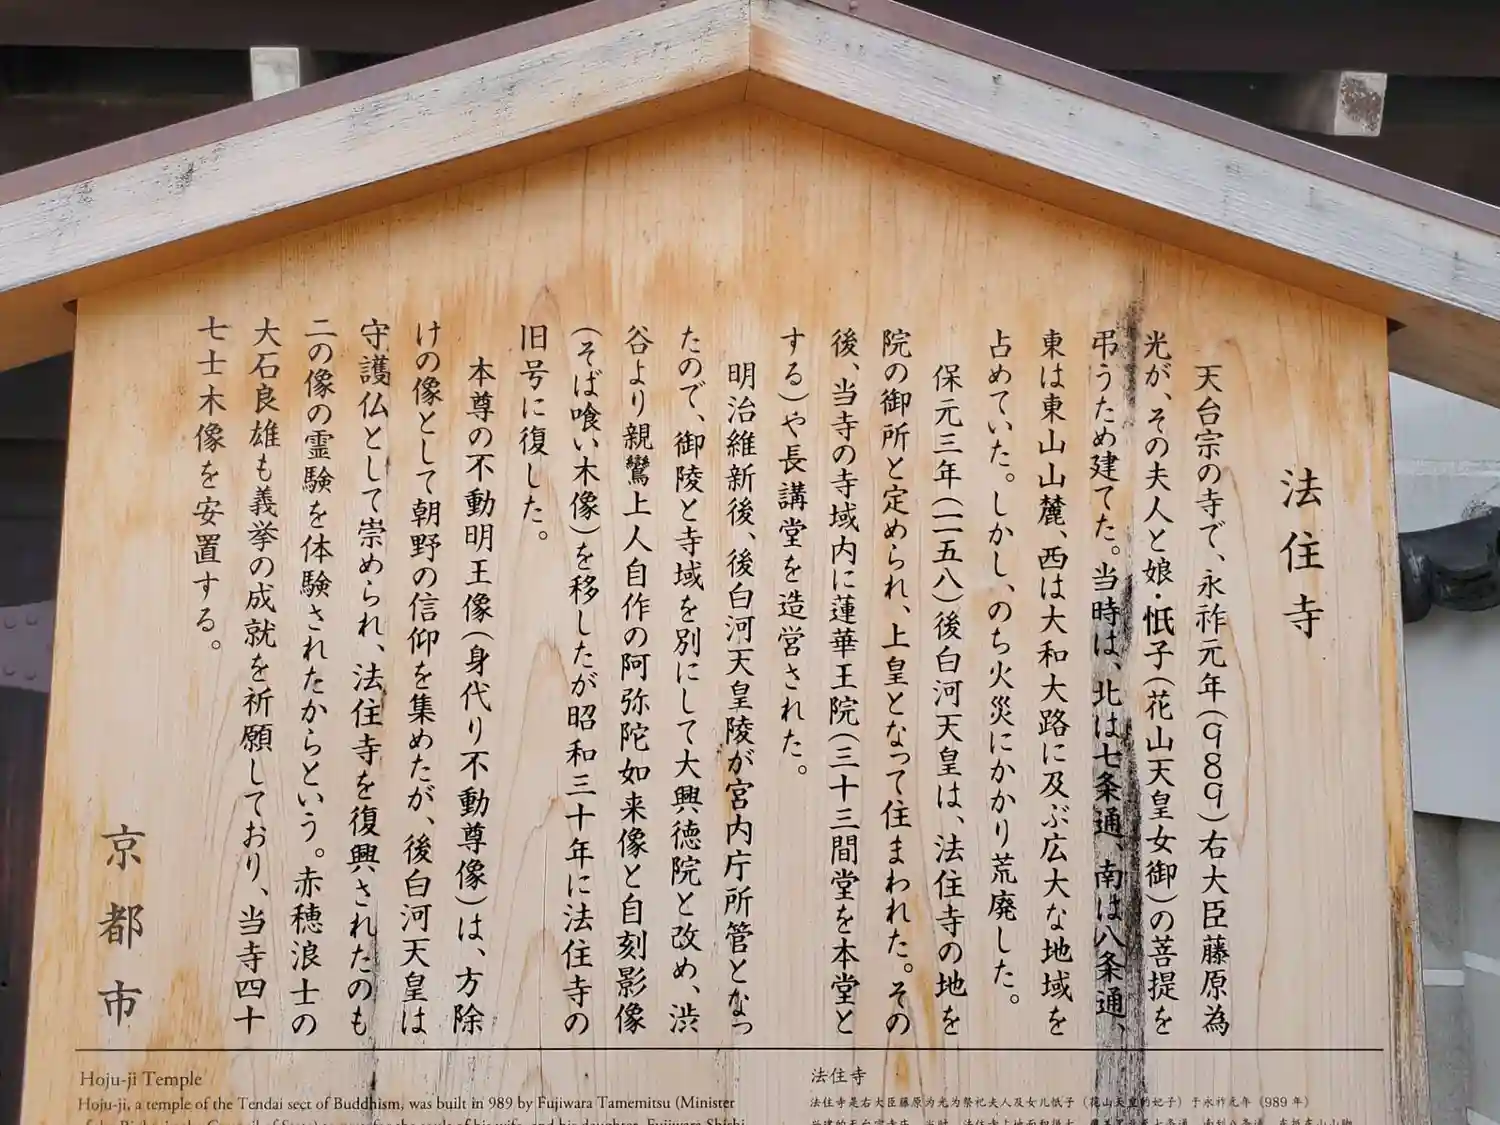 法住寺
天台宗の寺で、永祚元年(989)右大臣藤原為
光が、その夫人と娘・忯子(花山天皇女御)の菩提を
弔うため建てた。当時は、北は七条通、南は八条通、
東は東山山麓、西は大和大路に及ぶ広大な地域を
占めていた。しかし、のち火災にかかり荒廃した。
保元三年(一一五八)後白河天皇は、法住寺の地を
院の御所と定められ、上皇となって住まわれた。その
後、当寺の寺域内に蓮華王院(三十三間堂を本堂と
する)や長講堂を造営された。
明治維新後、後白河天皇陵が宮内庁所管となっ
たので、御陵と寺域を別にして大興徳院と改め、渋
谷より親鸞上人自作の阿弥陀如来像と自刻影像
(そば喰い木像)を移したが昭和三十年に法住寺の
旧号に復した。
本尊の不動明王像(身代り不動尊像)は、方除
けの像として朝野の信仰を集めたが、後白河天皇は
守護仏として崇められ、法住寺を復興されたのも
二の像の霊験を体験されたからという。赤穂浪士の
大石良雄も義挙の成就を祈願しており、当寺四十
七士木像を安置する。
京都市
Hoju-ji Temple
Hoju-ji, a temple of the Tendai sect of Buddhism, was built in 989 by Fujiwara Tamemitsu (Minister
法住寺
法住寺是右大臣藤原为光为祭祀夫人及女儿忯子(花山天皇的妃子)于永祚元年(989年)